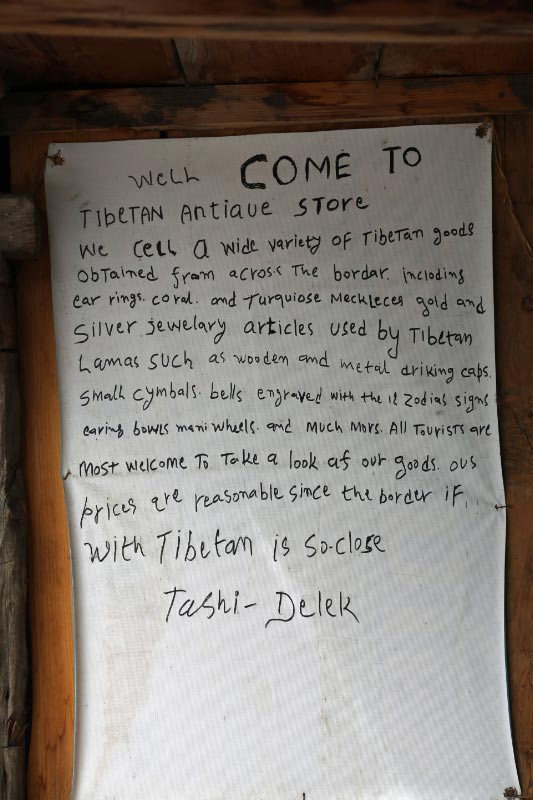 Well COME TO
TIBETAN Antique Store
We cell a wide variety of Tibetan goods
obtained from across The bordar. including
ear rings. coral. and Turquiose Meckleces gold and
Silver jewelary articles used by Tibetan
Lamas such as wooden and metal driking caps.
Small cymbals. bells engraved with the 12 Zodias signs
earing bowls mani wheels. and Much Mors. All Tourists are
Most welcome To Take a look af our goods. ous
prices are reasonable since the border if
with Tibetan is so-close
Tashi- Delek